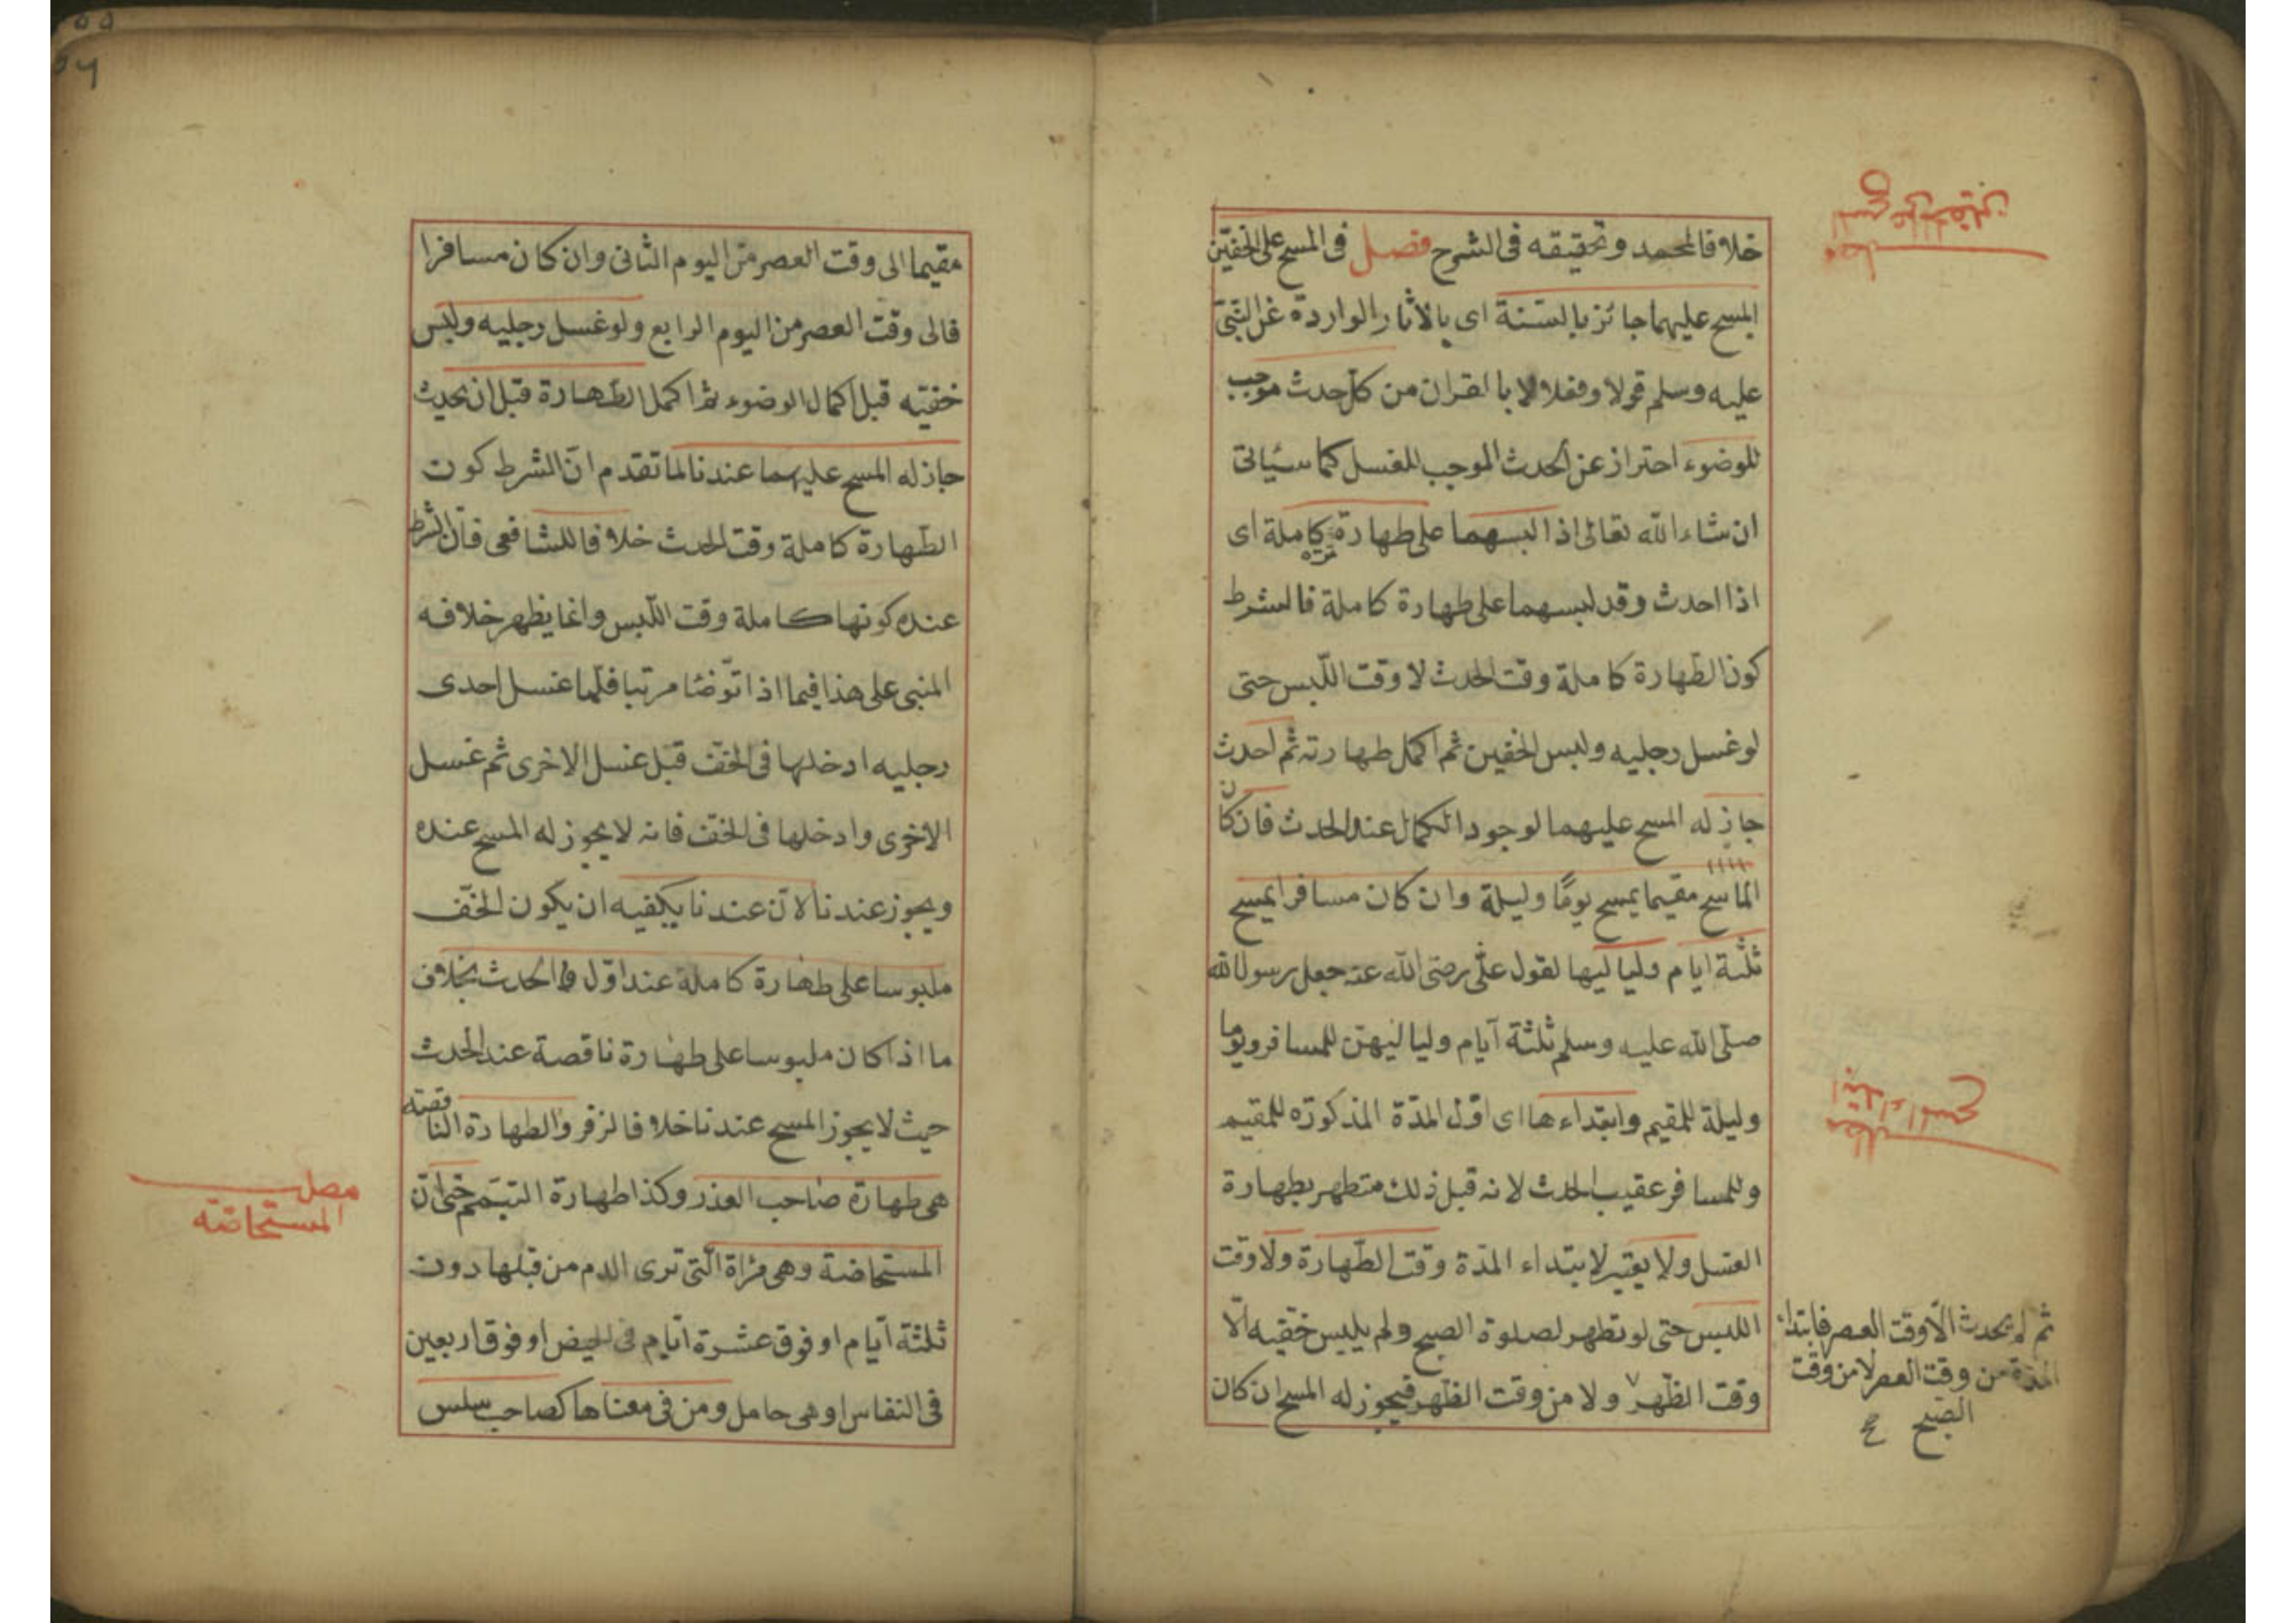 خلافا لمحمد وتحقيقه فى الشرح فصل فى المسح على الخفين
المسح عليهما جائز بالسنة اى بالاثار الواردة عن النبى
عليه وسلم قولا وفعلا لا بالقران من كل حدث موجب
للوضوء احتراز عن الحدث الموجب للغسل كما سيأتى
ان شاء الله تعالى اذا لبسهما على طهارة كاملة اى
اذا احدث وقد لبسهما على طهارة كاملة فالشرط
كون الطهارة كاملة وقت الحدث لا وقت اللبس حتى
لو غسل رجليه ولبس الخفين ثم اكمل طهارته ثم احدث
جاز له المسح عليهما لوجود الكمال عند الحدث فان كان
الماسح مقيما يمسح يوما وليلة وان كان مسافرا يمسح
ثلثة ايام ولياليها لقول على رضى الله عنه جعل رسول الله
صلى الله عليه وسلم ثلثة ايام ولياليهن للمسافر ويوما
وليلة للمقيم وابتداءها اى اول المدة المذكورة للمقيم
وللمسافر عقيب الحدث لانه قبل ذلك متطهر بطهارة
الغسل ولا يعتبر لابتداء المدة وقت الطهارة ولا وقت
اللبس حتى لو تطهر لصلوة الصبح ولم يلبس خفيه الا
وقت الظهر ولا من وقت الظهر فيجوز له المسح ان كان
فصل
المسح على الخفين
مطلب
ابتداء المسح
ثم لم يحدث الا وقت العصر فابتداء
المدة من وقت العصر لا من وقت
الصبح صح
مقيما الى وقت العصر من اليوم الثانى وان كان مسافرا
فالى وقت العصر من اليوم الرابع ولو غسل رجليه ولبس
خفيه قبل اكمال الوضوء ثم اكمل الطهارة قبل ان يحدث
جاز له المسح عليهما عندنا لما تقدم ان الشرط كون
الطهارة كاملة وقت الحدث خلافا للشافعى فان الشرط
عنده كونها كاملة وقت اللبس وانما يظهر خلافه
المبنى على هذا فيما اذا توضأ مرتبا فلما غسل احدى
رجليه ادخلها فى الخف قبل غسل الاخرى ثم غسل
الاخرى وادخلها فى الخف فانه لا يجوز له المسح عنده
ويجوز عندنا لان عندنا يكفيه ان يكون الخف
ملبوسا على طهارة كاملة عند اول الحدث بخلاف
ما اذا كان ملبوسا على طهارة ناقصة عند الحدث
حيث لا يجوز المسح عندنا خلافا لزفر والطهارة الناقصة
هى طهارة صاحب العذر وكذا طهارة التيمم حتى ان
المستحاضة وهى مرأة التى ترى الدم من قبلها دون
ثلثة ايام او فوق عشرة ايام فى الحيض او فوق اربعين
فى النفاس او هى حامل ومن فى معناها كصاحب سلس
مطلب
المستحاضة